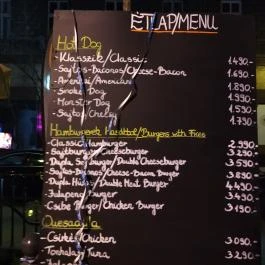 ÉTLAP/MENU
Hot Dog
- Klasszik/Classic 1.490.-
- Sajtos-Baconos/Cheese-Bacon 1.690.-
- Amerikai/American 1.590.-
- Smoke Dog 1.990.-
- Monster Dog 1.590.-
- Sajtos/Cheesy 1.790.-
Hamburgerek /Burgers with Fries
- Classic Hamburger 2.990.-
- Sajtburger/Cheeseburger 3.290.-
- Dupla Sajtburger/Double Cheeseburger 3.590.-
- Sajtos-Baconos/Cheese-Bacon Burger 3.890.-
- Dupla Húsos/Double Meat Burger 4.490.-
- Jalapeno Burger 3.490.-
- Csibe Burger/Chicken Burger 3.190.-
- Csirkés/Chicken 3.090.-
- Tonhalas/Tuna 3.290.-